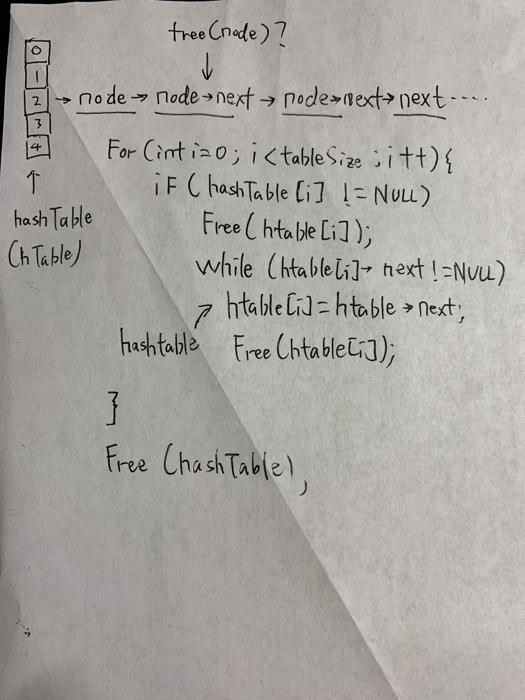 free(node)?
↓
0
1
2 → node → node→next → node→next→next ....
3
4
↑
hashTable
(hTable)
For (int i=0; i<tableSize ; i++){
if (hashTable[i] != NULL)
Free(htable[i]);
while (htable[i]→ next !=NULL)
htable[i]=htable→next;
hashtable ↗
Free(htable[i]);
}
Free (hashTable),